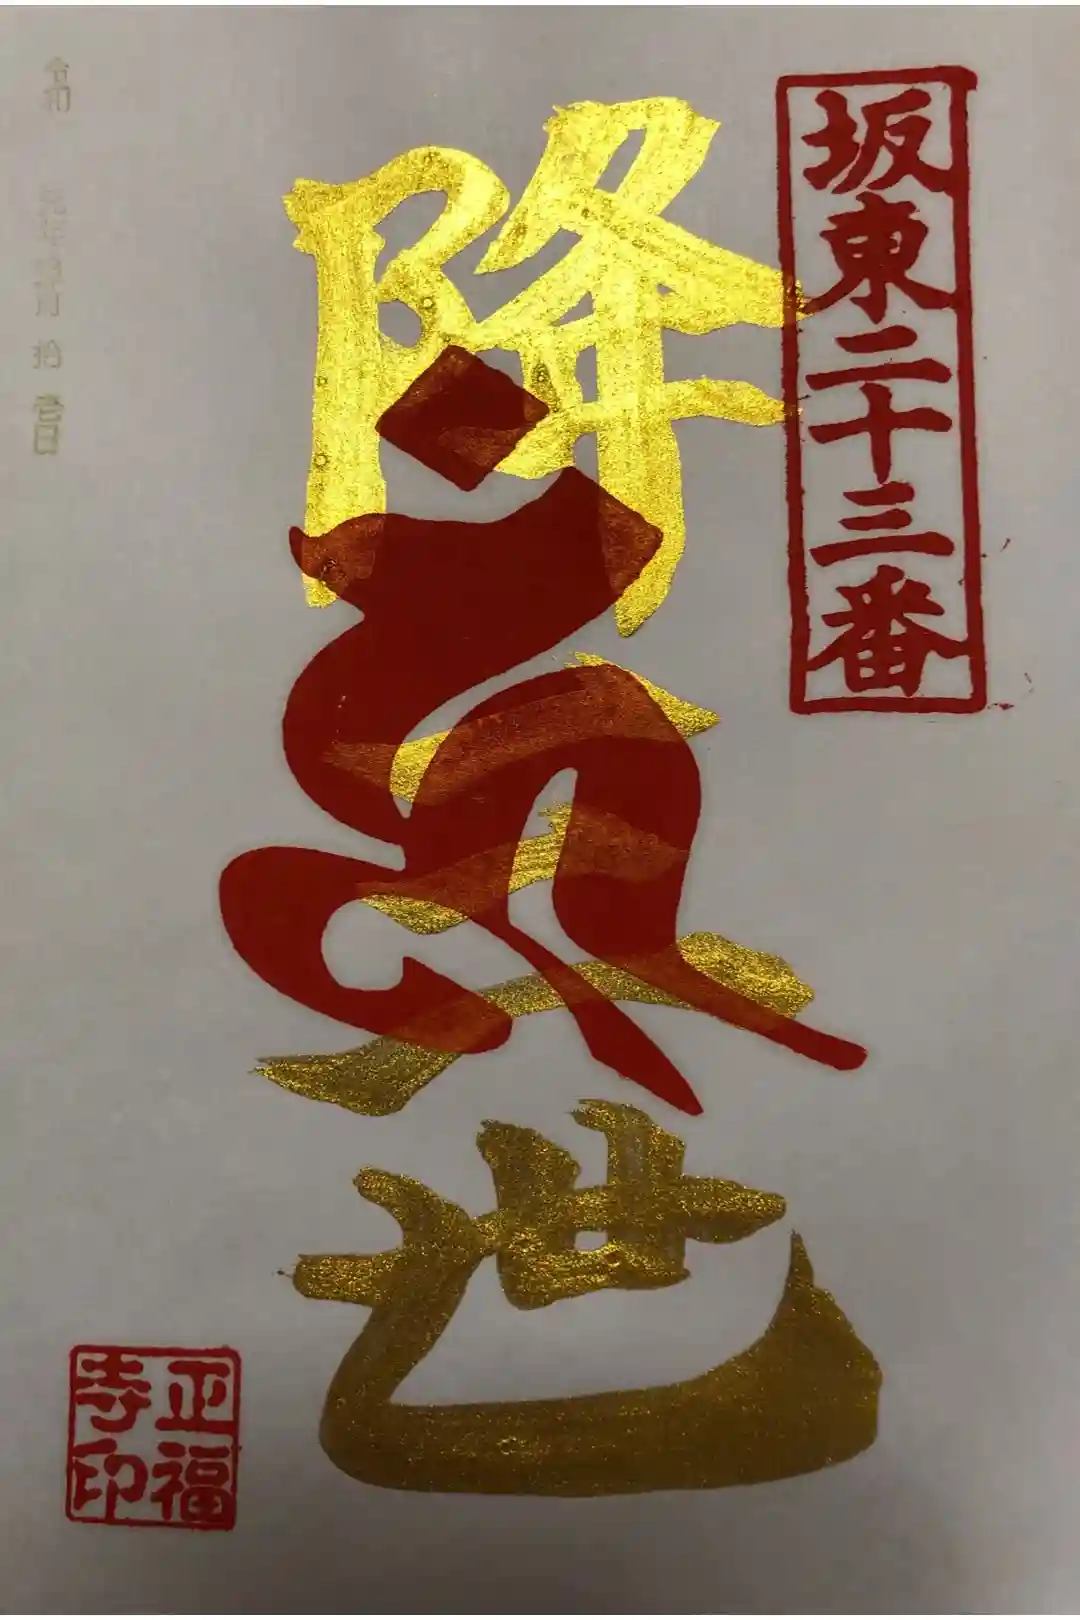 坂東二十三番
降三世
令和元年拾月拾壱日
正福
寺印